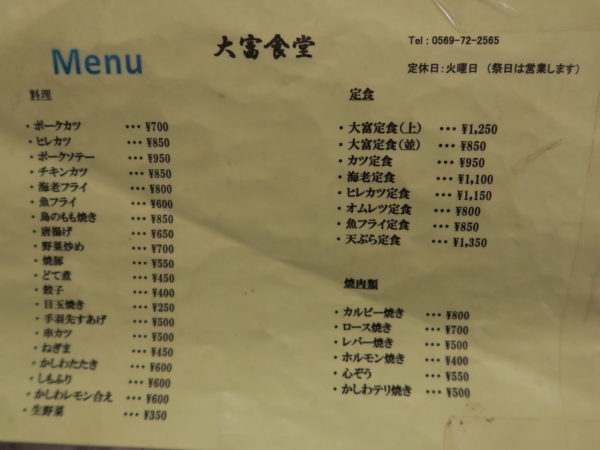 Menu
大富食堂
Tel : 0569-72-2565
定休日:火曜日 (祭日は営業します)
料理
・ポークカツ ・・・ ¥700
・ヒレカツ ・・・ ¥850
・ポークソテー ・・・ ¥950
・チキンカツ ・・・ ¥850
・海老フライ ・・・ ¥800
・魚フライ ・・・ ¥600
・鳥のもも焼き ・・・ ¥850
・唐揚げ ・・・ ¥650
・野菜炒め ・・・ ¥700
・焼豚 ・・・ ¥550
・どて煮 ・・・ ¥450
・餃子 ・・・ ¥400
・目玉焼き ・・・ ¥250
・手羽先すあげ ・・・ ¥500
・串カツ ・・・ ¥500
・ねぎま ・・・ ¥450
・かしわたたき ・・・ ¥600
・しもふり ・・・ ¥600
・かしわレモン合え ・・・ ¥600
・生野菜 ・・・ ¥350
定食
・大富定食(上) ・・・ ¥1,250
・大富定食(並) ・・・ ¥850
・カツ定食 ・・・ ¥950
・海老定食 ・・・ ¥1,100
・ヒレカツ定食 ・・・ ¥1,150
・オムレツ定食 ・・・ ¥800
・魚フライ定食 ・・・ ¥850
・天ぷら定食 ・・・ ¥1,350
焼肉類
・カルビー焼き ・・・ ¥800
・ロース焼き ・・・ ¥700
・レバー焼き ・・・ ¥500
・ホルモン焼き ・・・ ¥400
・心ぞう ・・・ ¥550
・かしわテリ焼き ・・・ ¥500